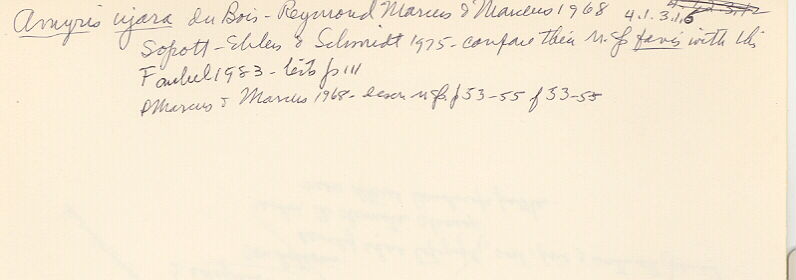 Amyris ujara du Bois-Reymond Marcus & Marcus 1968 4.1.3.16
Sopott-Ehlers & Schmidt 1975 - compare their n. sp. favis with this
Faubel 1983 - lists p 111
du Marcus & Marcus 1968 - descr n. sp. p 53-55 f 53-55